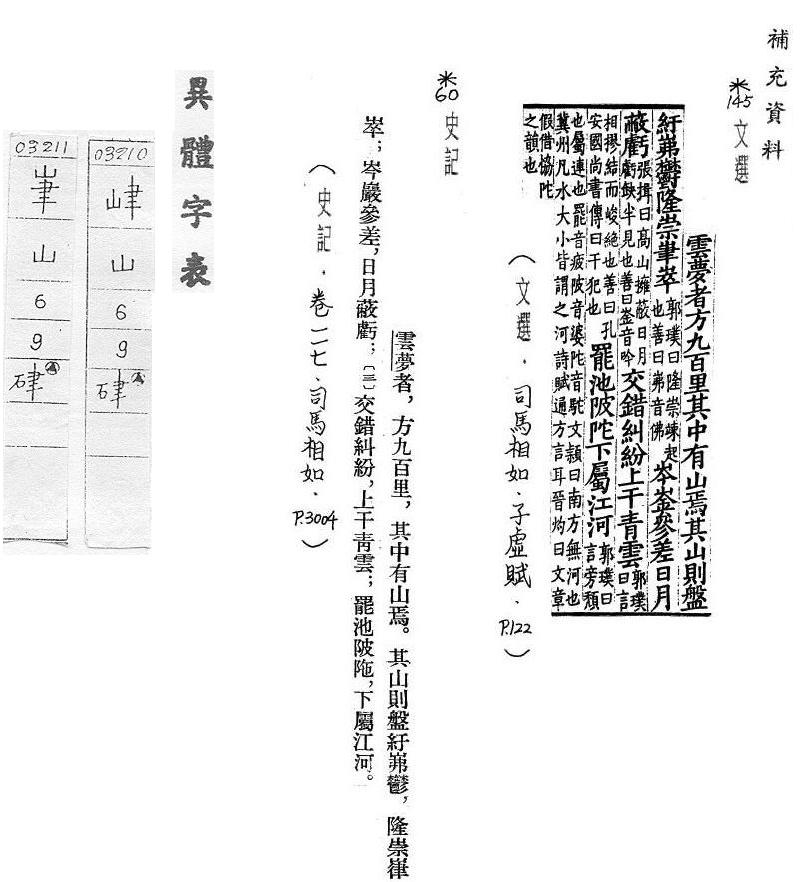 補充資料
*145 文選
雲夢者方九百里其中有山焉其山則盤
紆岪鬱隆崇嵂崒郭璞曰隆崇竦起也善曰岪音佛岑崟參差日月
蔽虧張揖曰高山擁蔽日月虧缺半見也善曰崟音吟交錯糾紛上干青雲郭璞曰言
相摎結而峻絶也善曰孔安國尚書傳曰干犯也罷池陂陀下屬江河郭璞曰言旁頹
也屬連也罷音疲陂音婆陀音駝文穎曰南方無河也冀州凡水大小皆謂之河詩賦通方言耳晉灼曰文章
假借協陀之韻也
(文選.司馬相如.子虛賦.P.122)
*60 史記
雲夢者,方九百里,其中有山焉。其山則盤紆岪鬱,隆崇嵂
崒;岑巖參差,日月蔽虧;〔三〕交錯糾紛,上干青雲;罷池陂陁,下屬江河。
(史記.卷一一七.司馬相如.P.3004)
異體字表
03210
山
6
9
硉
03211
山
6
9
硉